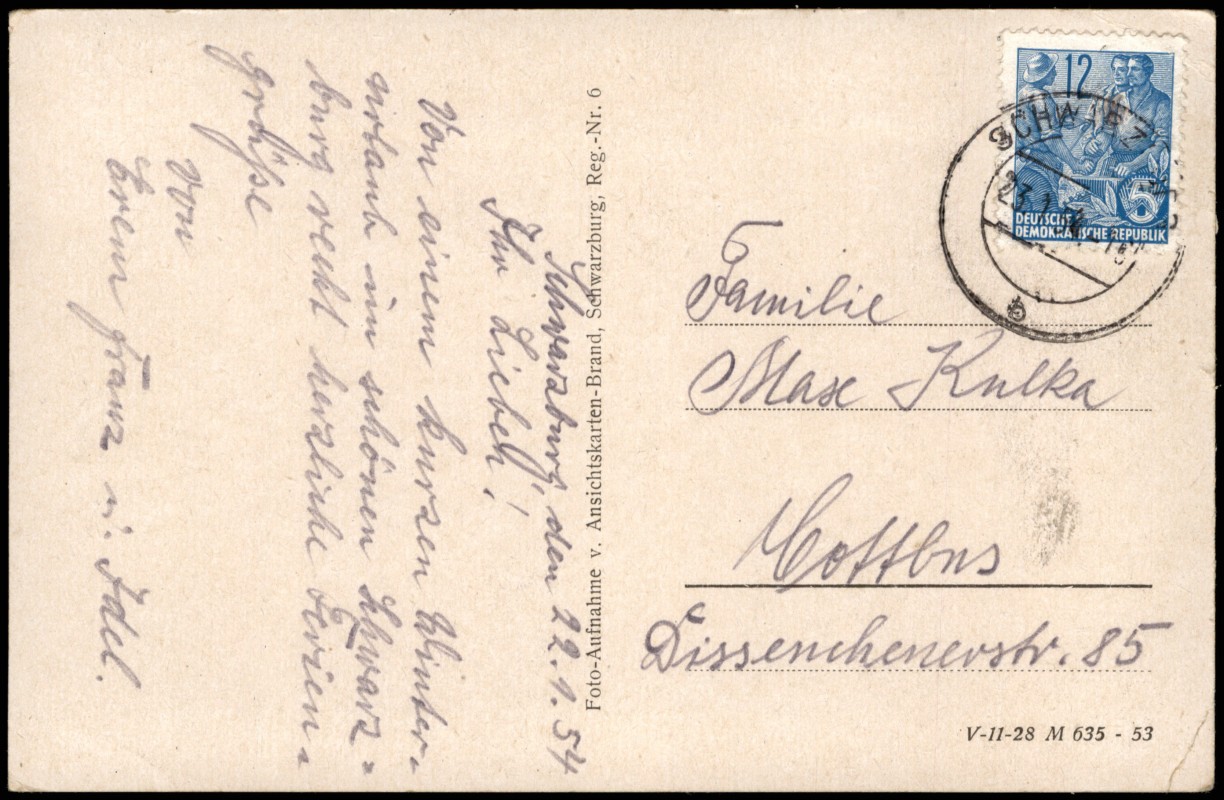 Schwarzburg, den 22.1.54
Ihr Lieben!
Von einem kurzen Winter-
urlaub im schönen Schwarz=
burg recht herzliche Ferien-
grüße
von
Erem Franz u. Idel.
Foto-Aufnahme v. Ansichtskarten-Brand, Schwarzburg, Reg.-Nr. 6
12
5
DEUTSCHE
DEMOKRATISCHE REPUBLIK
23.1.
Familie
Max Kulka
Cottbus
Dissenchenerstr. 85
V-11-28 M 635 - 53